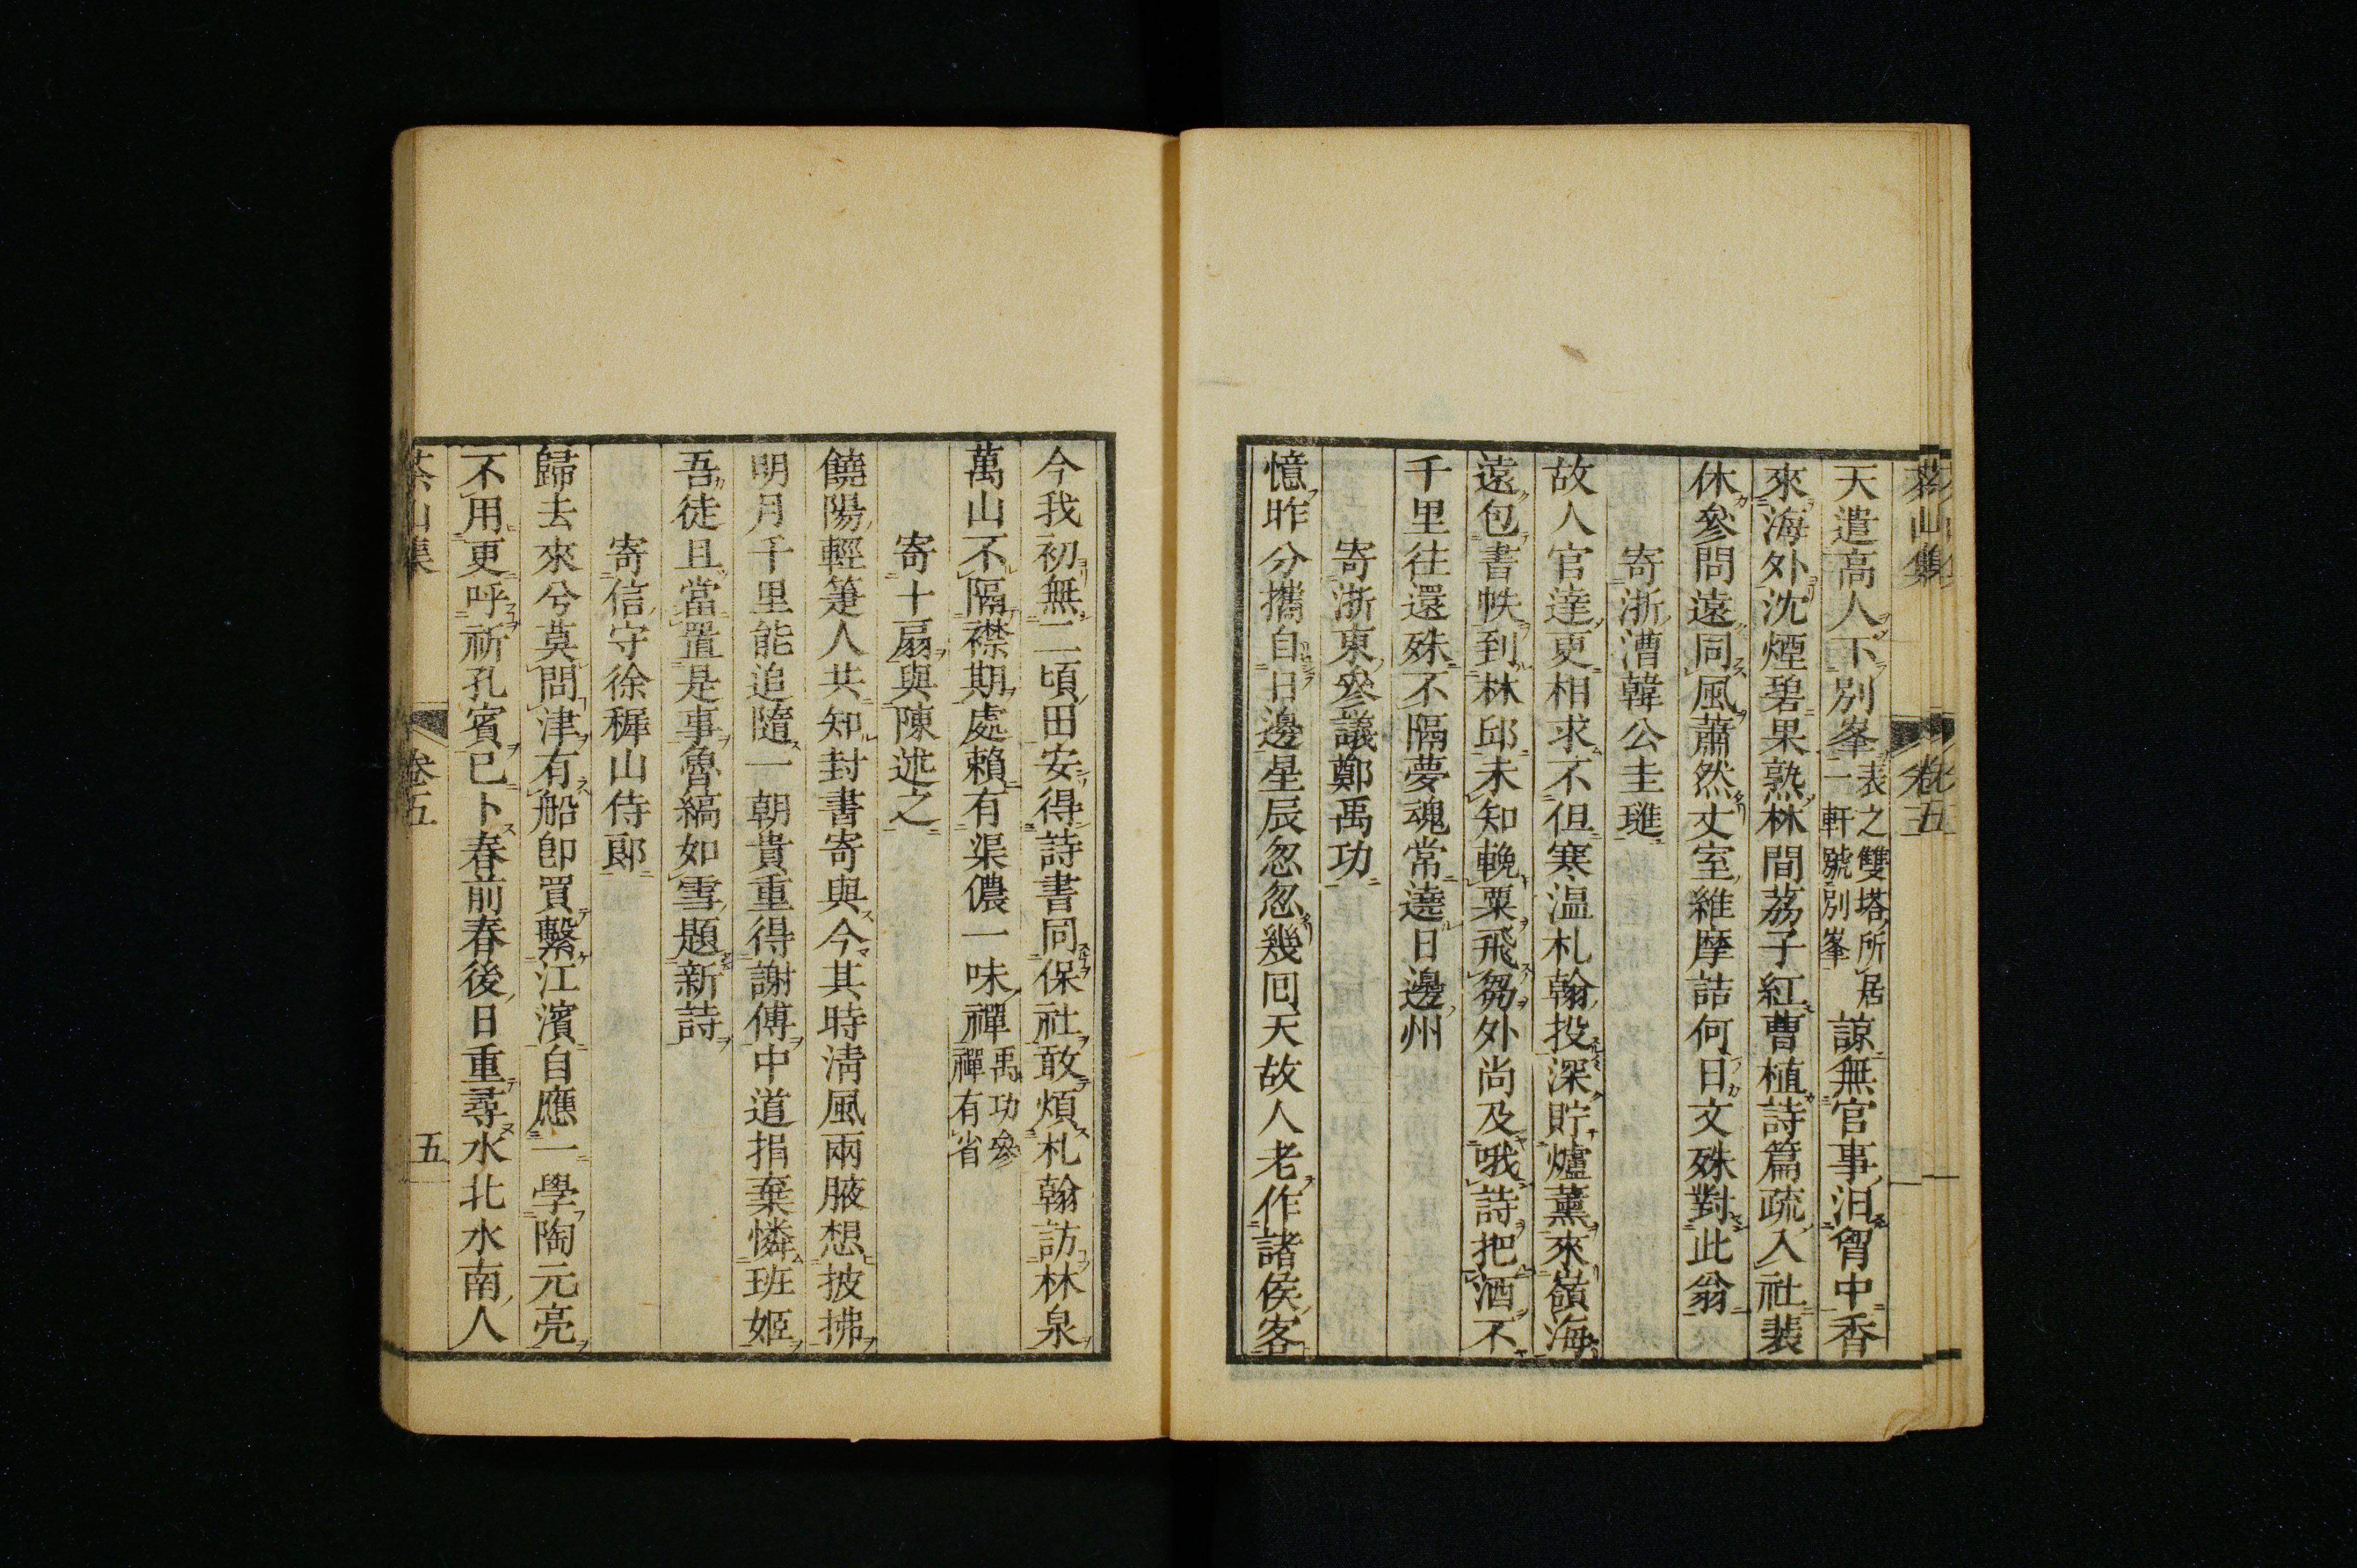 茶山集 卷五
天遣高人下別峯表之雙塔所居一軒號別峯諒無官事汨胷中香
來海外沈煙碧果熟林間荔子紅曹植詩篇疏入社裴
休參問遠同風蕭然丈室維摩詰何日文殊對此翁
寄浙漕韓公圭璡
故人官達更相求不但寒温札翰投深貯爐薰來嶺海
遠包書帙到林邱未知輓粟飛芻外尚及哦詩把酒不
千里往還殊不隔夢魂常遶日邊州
寄浙東參議鄭禹功
憶昨分攜自日邊星辰忽忽幾回天故人老作諸侯客
今我初無二頃田安得詩書同保社敢煩札翰訪林泉
萬山不隔襟期處賴有渠儂一味禪禹功參禪有省
寄十扇與陳述之
饒陽輕箑人共知封書寄與今其時淸風兩腋想披拂
明月千里能追隨一朝貴重得謝傅中道捐棄憐班姬
吾徒且當置是事魯縞如雪題新詩
寄信守徐穉山侍郞
歸去來兮莫問津有船卽買繫江濱自應一學陶元亮
不用更呼祈孔賓已卜春前春後日重尋水北水南人
茶山集 卷五 五